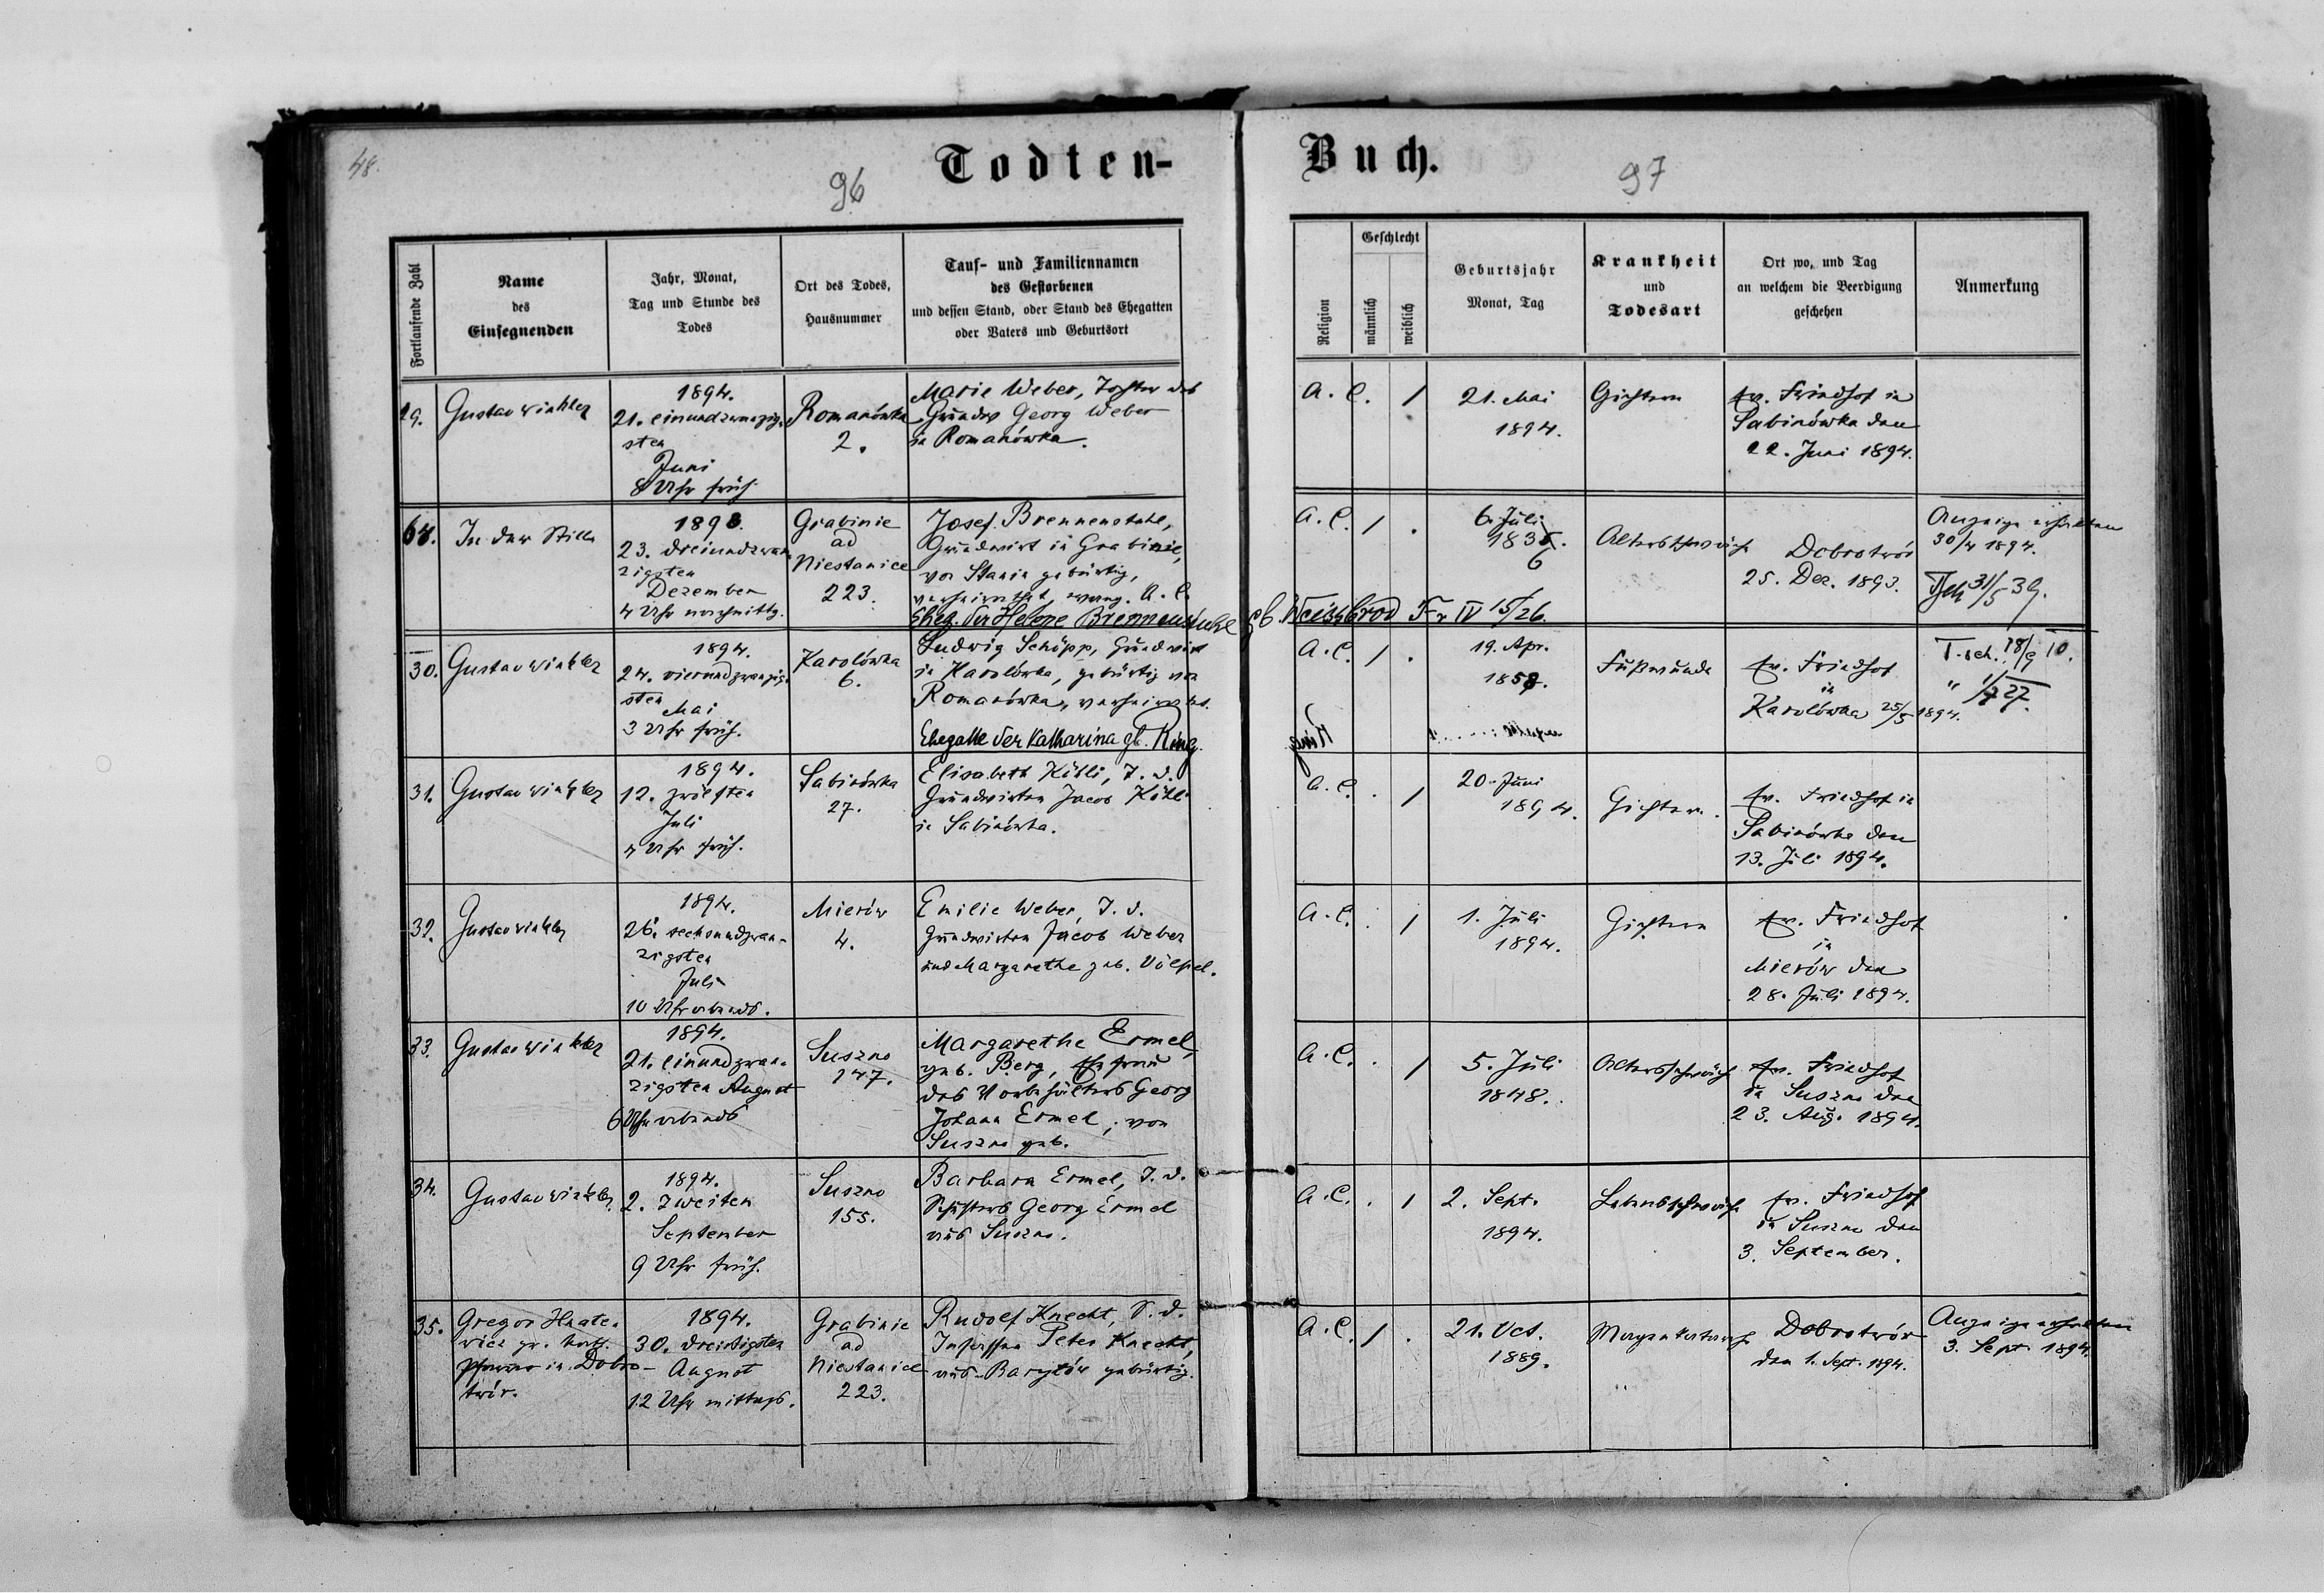 48.
96
Todten-
Fortlaufende Zahl
Name
des
Einsegnenden
Jahr, Monat,
Tag und Stunde des
Todes
Ort des Todes,
Hausnummer
Tauf- und Familiennamen
des Gestorbenen
und dessen Stand, oder Stand des Ehegatten
oder Vaters und Geburtsort
29.
Gustav Winkler
1894.
21. einundzwanzig-
sten
Juni
8 Uhr früh
Romanówka
2.
Marie Weber, Tochter des
Grundw. Georg Weber
in Romanówka.
64.
In der Stille
1893.
23. dreiundzwan-
zigsten
Dezember
4 Uhr nachmittg.
Grabinie
ad
Niestanice
223.
Josef Brennenstuhl,
Grundwirt in Grabinie,
von Stanin gebürtig,
verheirathet, evang. A. C.
Eheg. der Helene Brennenstuhl gb. Weissbrod Fr IV 15/26.
30.
Gustav Winkler
1894.
24. vierundzwanzig-
sten
Mai
3 Uhr früh.
Karolówka
6.
Ludwig Schöpp, Grundwirt
in Karolówka, gebürtig von
Romanówka, verheirathet.
Ehegatte der Katharina gb. Ring.
31.
Gustav Winkler
1894.
12. zwölften
Juli
4 Uhr früh.
Sabinówka
27.
Elisabeth Köhli, T. d.
Grundwirten Jacob Köhli
in Sabinówka.
32.
Gustav Winkler
1894.
26. sechsundzwan-
zigsten
Juli
10 Uhr abends.
Mierów
4.
Emilie Weber, T. d.
Grundwirten Jacob Weber
und Margarethe geb. Völpel.
33.
Gustav Winkler
1894.
21. einundzwan-
zigsten August
6 Uhr abends
Suszno
147.
Margarethe Ermel,
geb. Berg, Ehefrau
des Vorbehälters Georg
Johann Ermel, von
Suszno geb.
34.
Gustav Winkler
1894.
2. zweiten
September
9 Uhr früh.
Suszno
155.
Barbara Ermel, T. d.
Schusters Georg Ermel
aus Suszno.
35.
Gregor Hnate-
wicz gr. kath.
Pfarrer in Dobro-
twór.
1894.
30. dreissigsten
August
12 Uhr mittags.
Grabinie
ad
Niestanice
223.
Rudolf Knecht, S. d.
Insassen Peter Knecht,
aus Barylów gebürtig.
Buch.
97
Religion
Geschlecht
männlich
weiblich
Geburtsjahr
Monat, Tag
Krankheit
und
Todesart
Ort wo, und Tag
an welchem die Beerdigung
geschehen
Anmerkung
A. C.
/
21. Mai
1894.
Gichtern
ev. Friedhof in
Sabinówka den
22. Juni 1894.
A. C.
/ .
6. Juli
1835.
6
Altersschwäche
Dobrotwór
25. Dez. 1893.
Anzeige erhalten
30/4 1894.
A. C.
/ .
19. Apr.
1858.
Fußwunde
ev. Friedhof
in
Karolówka 25/5 1894.
T. sch. 18/9 10.
Ring
A. C.
. /
20. Juni
1894.
Gichtern.
ev. Friedhof in
Sabinówka den
13. Juli 1894.
A. C.
. /
1. Juli
1894.
Gichtern
ev. Friedhof
in
Mierów den
28. Juli 1894.
A. C.
. /
5. Juli
1848.
Altersschwäche
ev. Friedhof
in Suszno den
23. Aug. 1894.
A. C.
. /
2. Sept.
1894.
Lebensschwäche
ev. Friedhof
in Suszno den
3. September.
A. C.
/ .
21. Oct.
1889.
Magenkatarrh
Dobrotwór
den 1. Sept. 1894.
Anzeige erhalten
3. Sept. 1894.